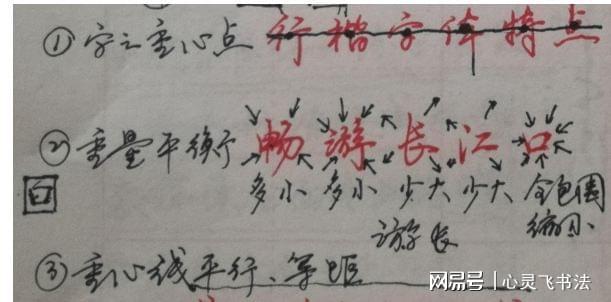 ①字之重心点 行楷字体特点
②重量平衡 畅游长江口
多小 多小 少大 少大 全包围
回 游长 缩小
③重心线平行、等距
网易号|心灵飞书法